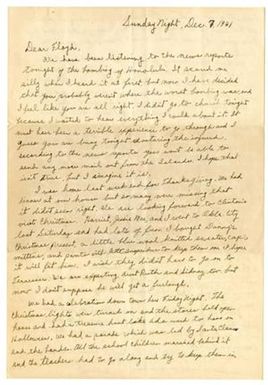 Sunday Night, Dec. 7, 1941
Dear Floyd:
We have been listening to the news reports
tonight of the bombing of Honolulu. It scared me
silly when I heard it at first but now I have decided
that you probably weren't where the worst bombing was and
I feel like you are all right. I didn't go to church tonight
because I waited to hear everything I could about it. It
must have been a terrible experience to go through and I
guess you are busy tonight comforting the injured.
according to the news reports you won't be able to
send any more mail out from the Islands. I hope that
isn't true, but I imagine it is.
I was home last week end for Thanksgiving. We had
so many were missing that
it didn't seem right. We are looking forward to
visit Christmas. Harriet, Jessie Mae, and I went to
last Saturday and had lots of fun. I bought Danny's
Christmas present, a little blue knitted sweater, cap,
mittens, and panties with
it will fit him. I wish they didn't have to go on to
Tennessee. We are expecting Aunt Ruth and Sidney too but
now I don't suppose he will get a furlough.
We had a celebration down town here Friday Night. The
Christmas lights were turned on and the stores held open
house and had a treasure hunt like we used to have on
Halloween. We had a parade which was led by Santa Claus
and the bands. All the school children marched behind it
and the teachers had to go along and try to keep them in